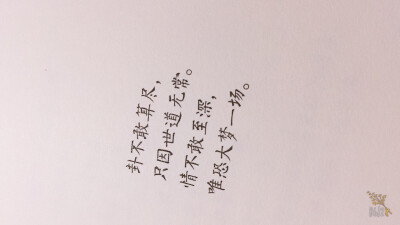 卦不敢算尽，
只因世道无常。
情不敢至深，
唯恐大梦一场。